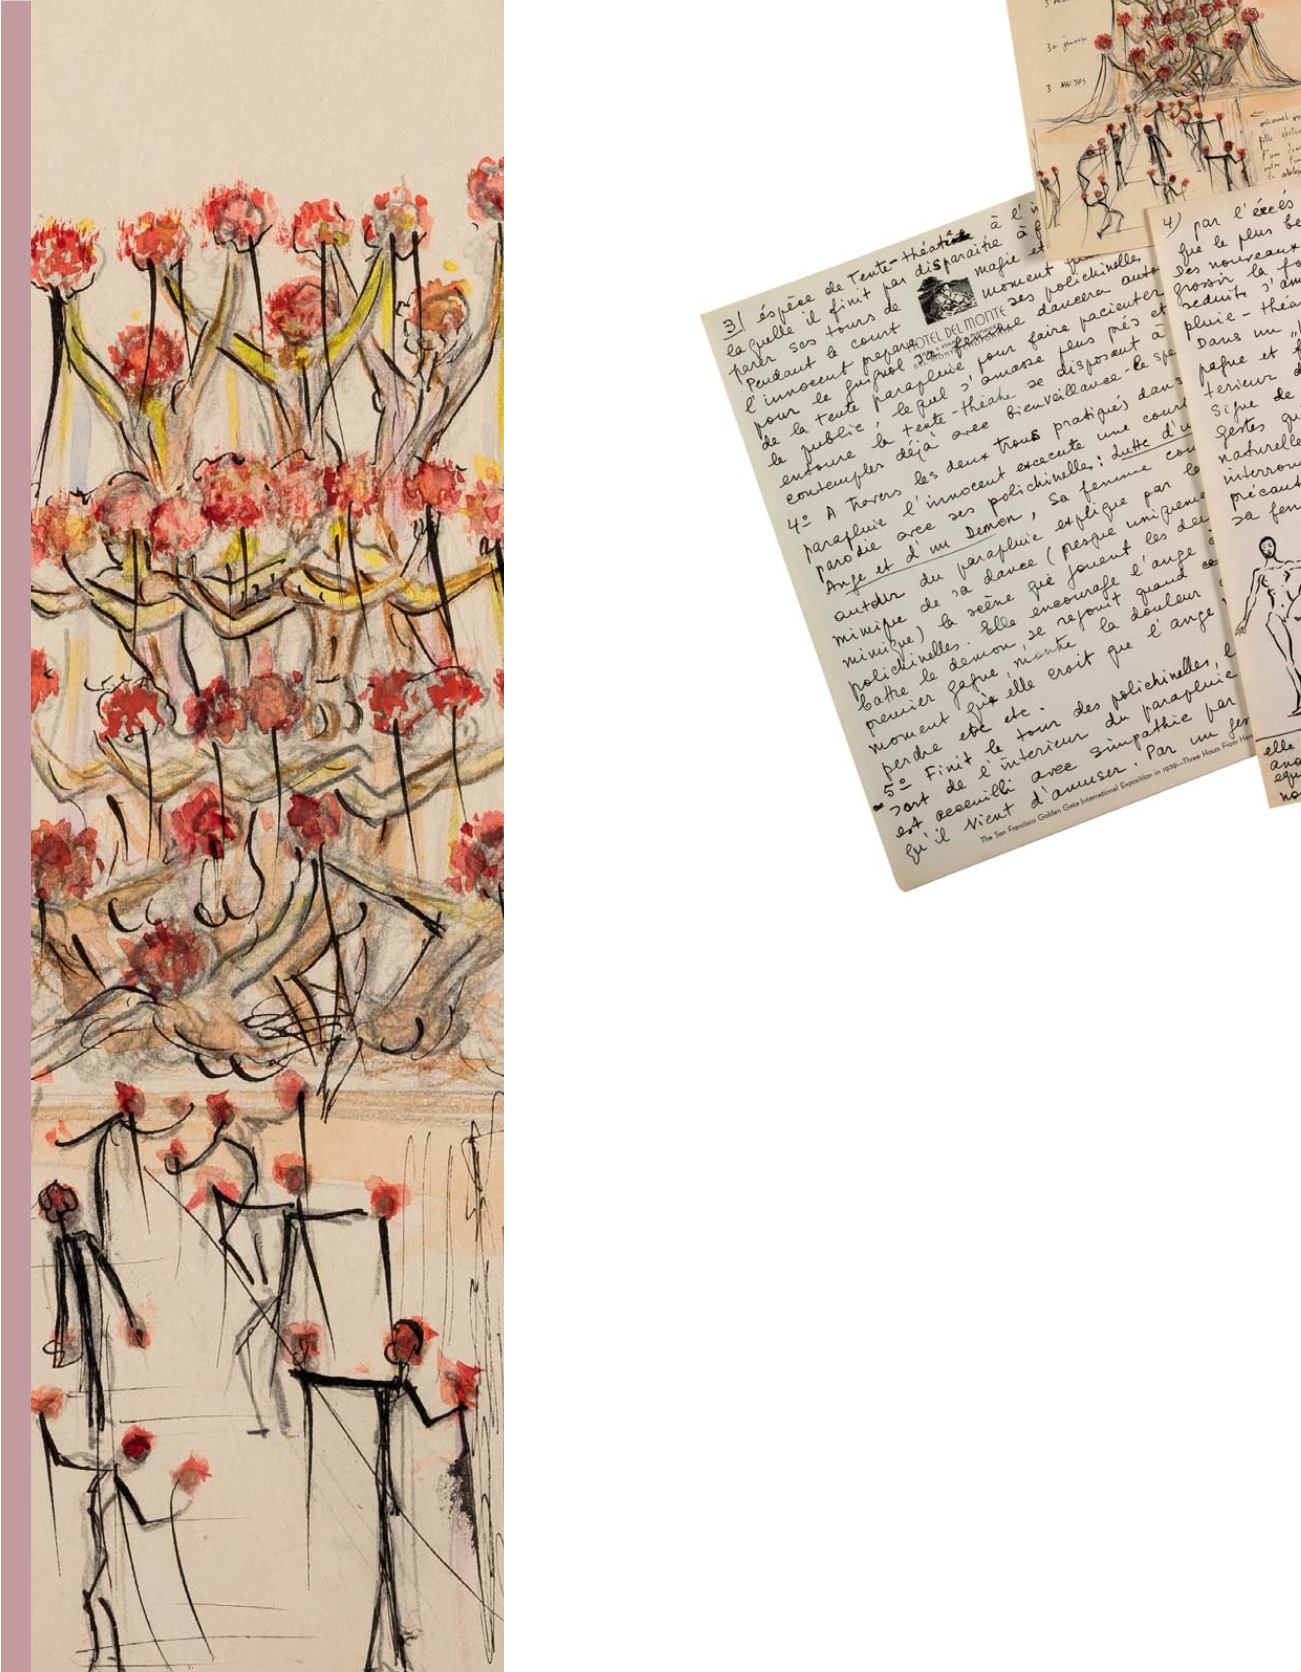 3 MAITRES
3) éspèce de Tente-théatre à l'i
laquelle il finit par disparaitre à f
parer ses tours de magie et
Pendant le court moment
l'innocent prepare ses polichinelles
pour le guignol sa femme dancera auto
de la tente parapluie pour faire pacienter
le public, lequel s'amasse plus prés et
entoure la tente-théatre se disposant à
contempler déjà avec bienveillance le spe
4º A travers les deux trous pratiqués dans
parapluie l'innocent excecute une court
parodie avec ses polichinelles: Lutte d'u
Ange et d'un Demon, Sa femme cou
autour du parapluie explique par le
mimique de sa dance (presque uniqueme
mimique) la scène qui jouent les deu
polichinelles. Elle encourage l'ange à
battre le demon, se rejouit quand ce
premier gagne, montre la douleur
moment que elle croit que l'ange
perdre etc etc.
5º Finit le tour des polichinelles, l
sort de l'interieur du parapluie
est accueilli avec simpathie par
qu'il vient d'amuser. Par un ges
HOTEL DEL MONTE
The San Francisco Golden Gate International Exposition in 1939—Three Hours From
4) par l'éxcés
que le plus be
Des nouveaux
grossir la fo
seduits s'am
pluie-théa
Dans un
pagne et f
terieur d
Signe de
gestes qu
naturelle
interrom
précaut
sa fem
elle
ano
equ
no